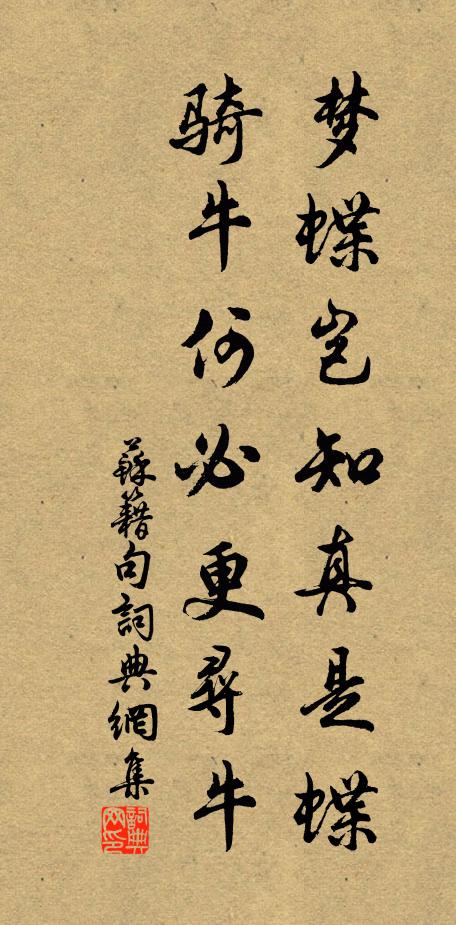 梦蝶岂知真是蝶
骑牛何必更尋牛
蘇籍句詞典網集
詞典网印